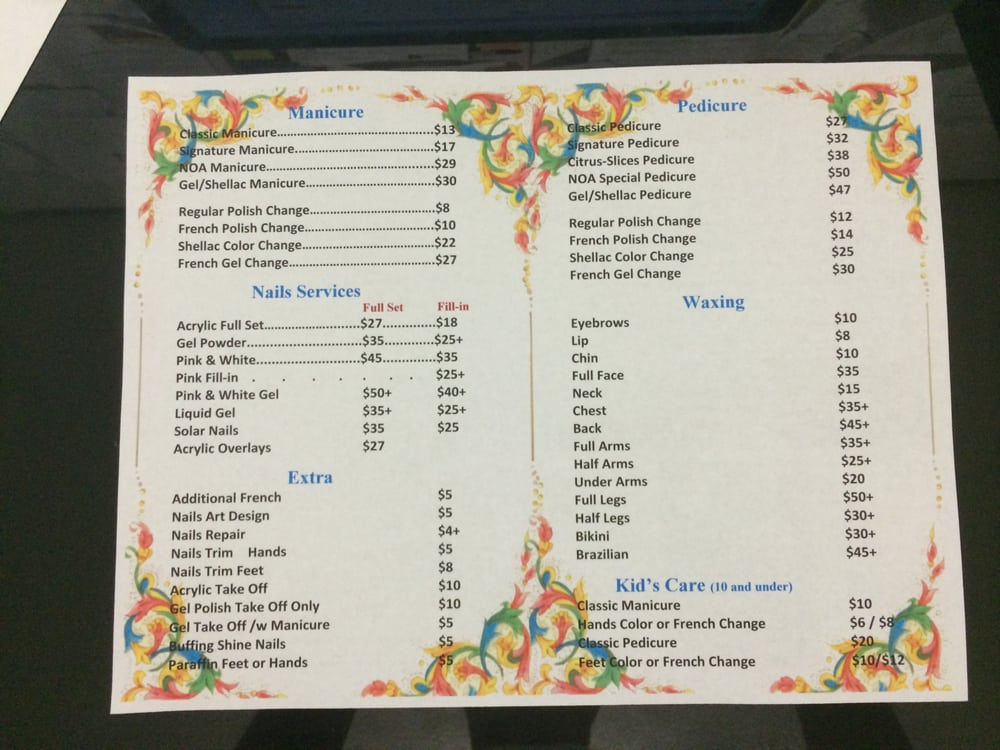 Manicure
Classic Manicure.......................................$13
Signature Manicure...................................$17
NOA Manicure..........................................$29
Gel/Shellac Manicure................................$30
Regular Polish Change...............................$8
French Polish Change................................$10
Shellac Color Change.................................$22
French Gel Change....................................$27
Nails Services
Full Set Fill-in
Acrylic Full Set........................$27.............$18
Gel Powder............................$35............$25+
Pink & White..........................$45.............$35
Pink Fill-in . . . . . . . $25+
Pink & White Gel $50+ $40+
Liquid Gel $35+ $25+
Solar Nails $35 $25
Acrylic Overlays $27
Extra
Additional French $5
Nails Art Design $5
Nails Repair $4+
Nails Trim Hands $5
Nails Trim Feet $8
Acrylic Take Off $10
Gel Polish Take Off Only $10
Gel Take Off /w Manicure $5
Buffing Shine Nails $5
Paraffin Feet or Hands $5
Pedicure
Classic Pedicure $27
Signature Pedicure $32
Citrus-Slices Pedicure $38
NOA Special Pedicure $50
Gel/Shellac Pedicure $47
Regular Polish Change $12
French Polish Change $14
Shellac Color Change $25
French Gel Change $30
Waxing
Eyebrows $10
Lip $8
Chin $10
Full Face $35
Neck $15
Chest $35+
Back $45+
Full Arms $35+
Half Arms $25+
Under Arms $20
Full Legs $50+
Half Legs $30+
Bikini $30+
Brazilian $45+
Kid's Care (10 and under)
Classic Manicure $10
Hands Color or French Change $6 / $8
Classic Pedicure $20
Feet Color or French Change $10/$12